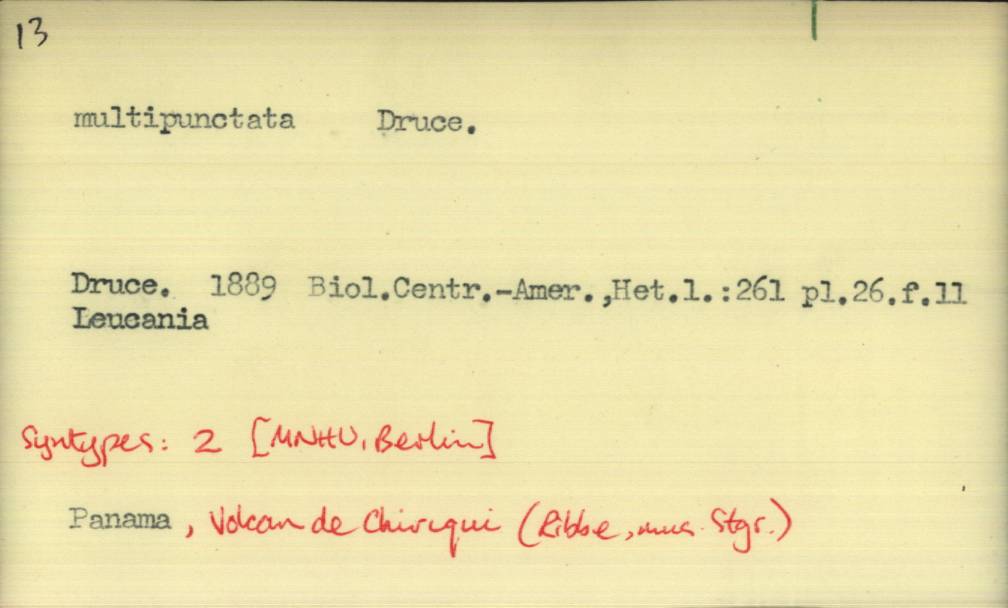 13
multipunctata Druce.
Druce. 1889 Biol.Centr.-Amer.,Het.1.:261 pl.26.f.11
Leucania
Syntypes: 2 [MNHU, Berlin]
Panama, Volcan de Chiriqui (Ribbe, mus. Stgr.)